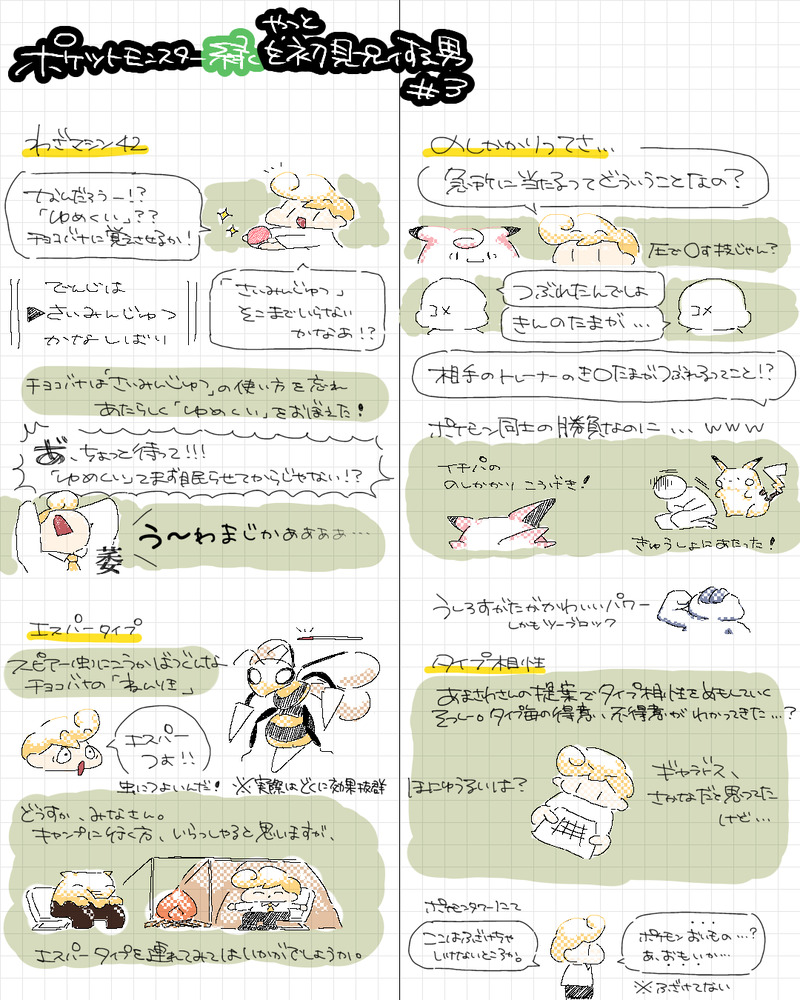 やっと
ポケットモンスター緑を初見プレイする男
#3
わざマシン42
なんだろうー!?
「ゆめくい」??
チョコバナに覚えさせるか!
でんじは
▶さいみんじゅつ
かなしばり
「さいみんじゅつ」
そこまでいらない
かなあ!?
チョコバナは「さいみんじゅつ」の使い方を忘れ
あたらしく「ゆめくい」をおぼえた!
あ、ちょっと待って!!!
「ゆめくい」てまず眠らせてからじゃない!?
う〜わまじかぁぁぁぁ…
萎
エスパータイプ
スピアー虫にこうかばつぐんな
チョコバナの「ねんりき」
エスパー
つよ!!
虫につよいんだ! ※実際はどくに効果抜群
どうすか、みなさん。
キャンプに行く方、いらっしゃると思いますが、
エスパータイプを連れてみてはいかがでしょうか。
のしかかりってさ…
急所に当たるってどういうことなの?
圧で〇す技じゃん?
コメ
つぶれたんでしょ
きんのたまが…
コメ
相手のトレーナーのき〇たまがつぶれるってこと!?
ポケモン同士の勝負なのに…www
イキパの
のしかかり こうげき!
きゅうしょにあたった!
うしろすがたがかわいいパワー
しかもツーブロック
タイプ相性
あまさわさんの提案でタイプ相性をめもしていく
そうし。タイプ毎の得意、不得意がわかってきた…?
ほにゅうるいは?
ギャラドス、
さかなだと思ってた
けど…
ポケモンタワーにて
ここはふざけちゃ
いけないところか。
ポケモンおいもの…?
あ、おもいか…
※ふざけてない